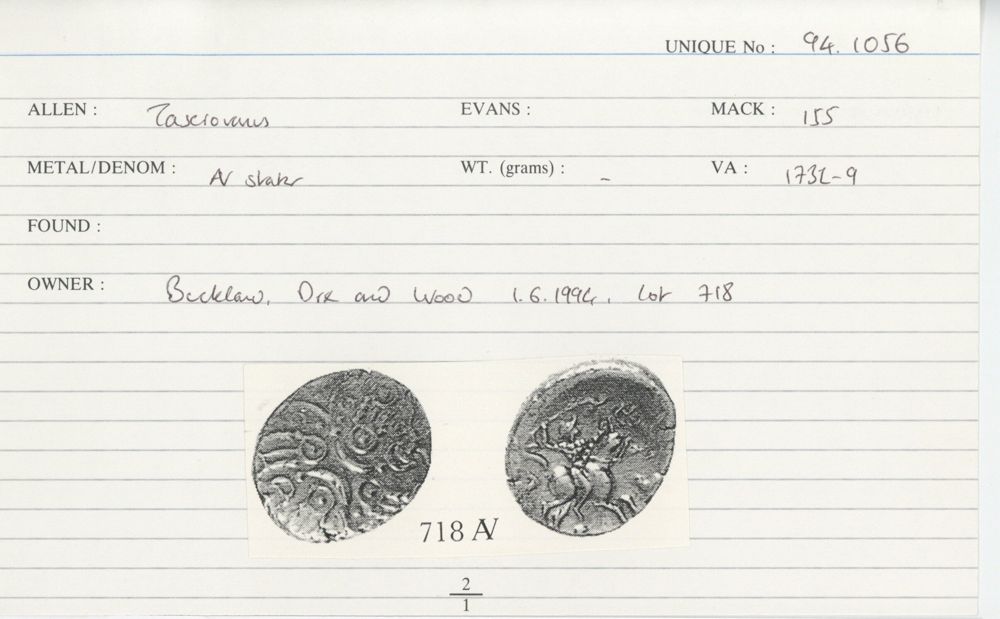 UNIQUE No : 94.1056
ALLEN : Tasciovanus EVANS : MACK : 155
METAL/DENOM : AV stater WT. (grams) : – VA : 1732-9
FOUND :
OWNER : Buckland, Dix and Wood 1.6.1994, Lot 718
718 AV
2
1